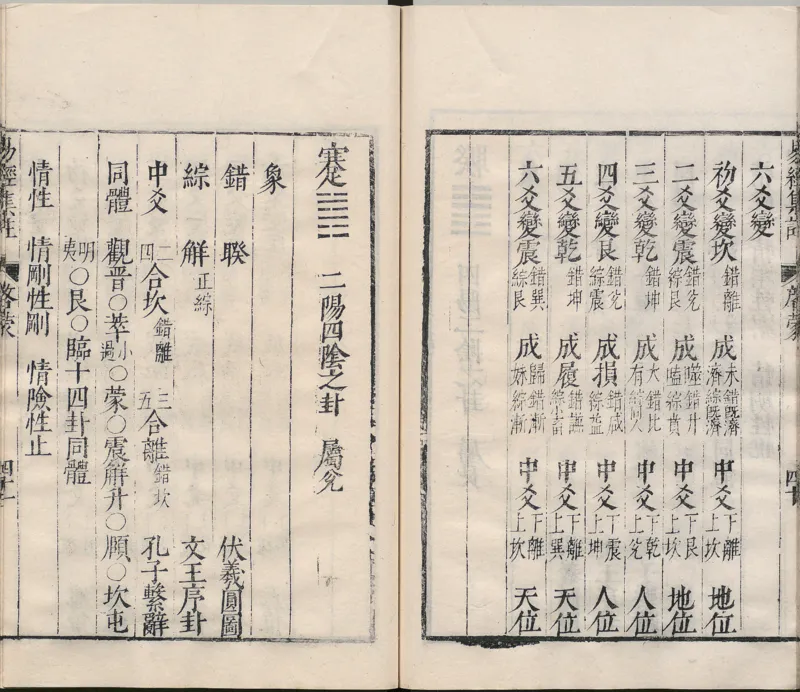 易經集註
四十
六爻變
初爻變坎 錯離 成未濟 錯既濟綜既濟 中爻 下離上坎 地位
二爻變震 錯巽綜艮 成噬嗑 錯井綜賁 中爻 下艮上坎 地位
三爻變乾 錯坤 成大有 錯比綜同人 中爻 下乾上兌 人位
四爻變艮 錯兌綜震 成損 錯咸綜益 中爻 下震上坤 人位
五爻變乾 錯坤 成履 錯謙綜小畜 中爻 下離上巽 天位
六爻變震 錯巽綜艮 成歸妹 錯漸綜漸 中爻 下離上坎 天位
蹇䷦ 二陽四陰之卦 屬兌
象
錯 睽 伏羲圓圖
綜 解 正綜 文王序卦
中爻 二四合坎 錯離 三五合離 錯坎 孔子繫辭
同體 觀晉○萃小過○蒙○震解升○頤○坎屯
明夷○艮○臨十四卦同體
情性 情剛性剛 情險性止
易經集註
四十一